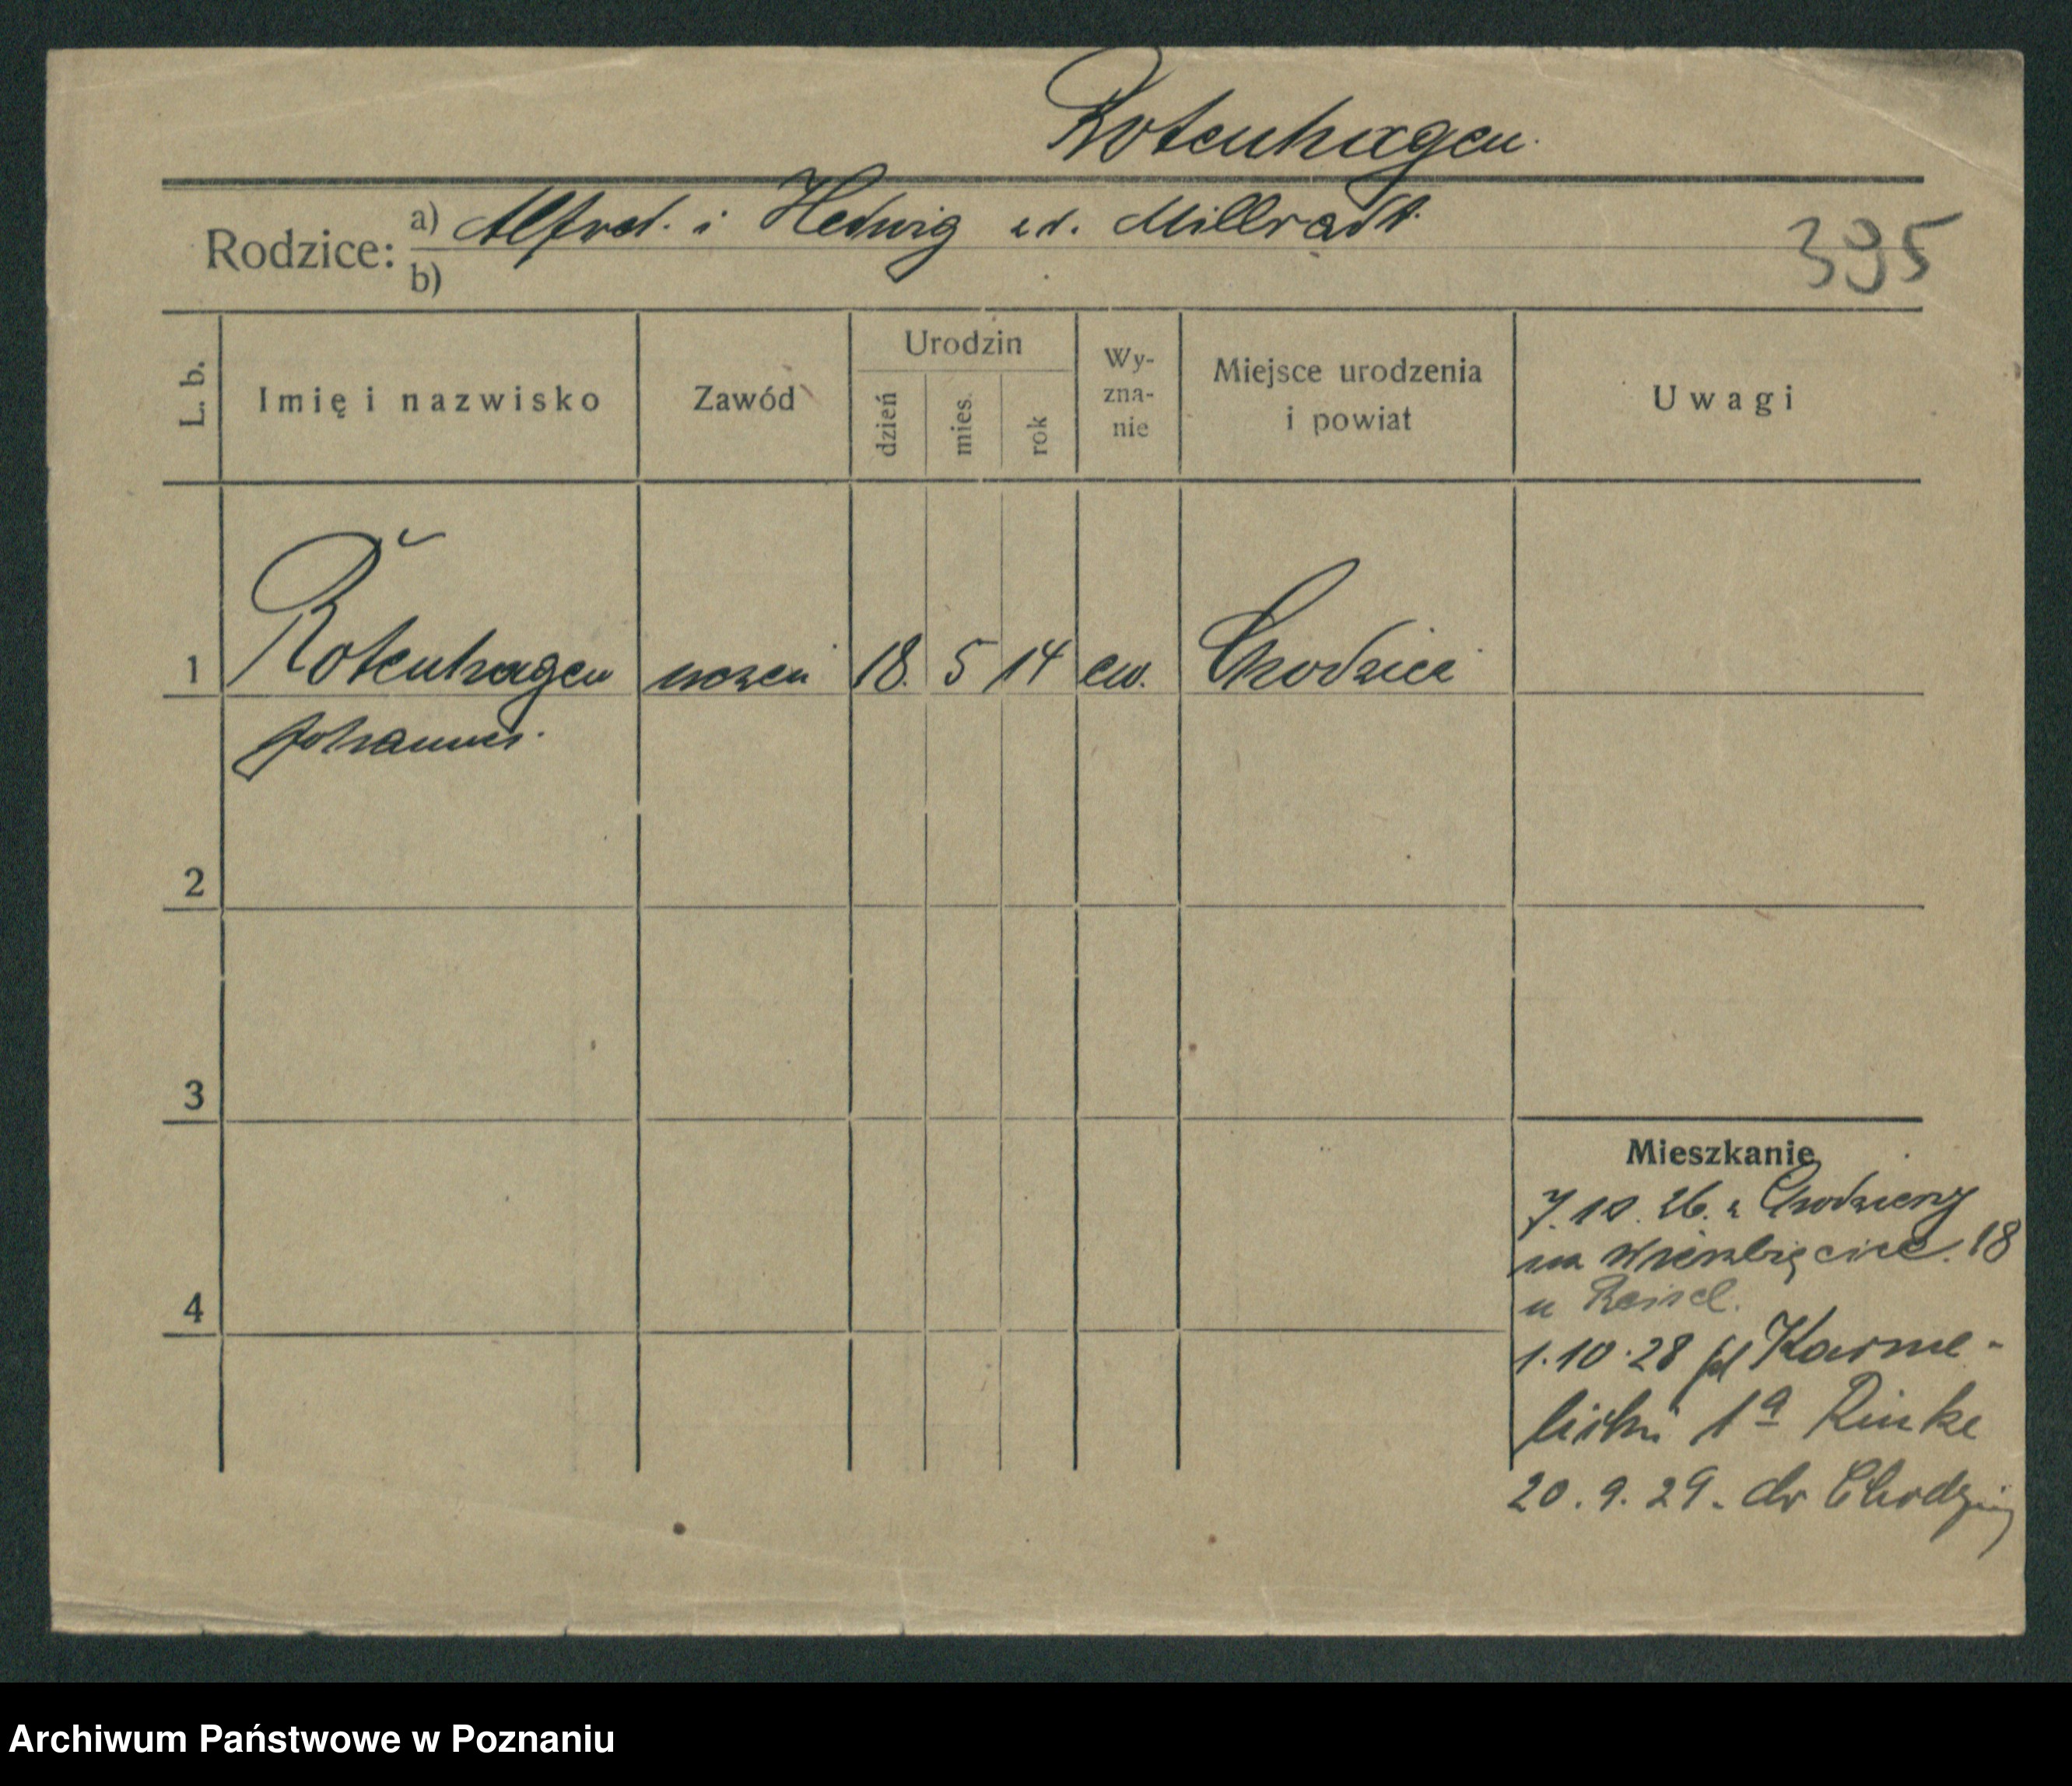 Rotenhagen.
Rodzice: a) Alfred. i Hedwig z d. Millradt.
b)
395
L. b.
Imię i nazwisko
Zawód
Urodzin
dzień
mies.
rok
Wy-
zna-
nie
Miejsce urodzenia
i powiat
Uwagi
1 Rotenhagen uczeń 18. 5 14 ew. Chodzież
Johannes.
2
3
4
Mieszkanie
7.10.26. z Chodzieży
na Wierzbięcice. 18
u
1.10.28 pl Karme-
licki 1a Rinke
20.9.29. do Chodzieży
Archiwum Państwowe w Poznaniu